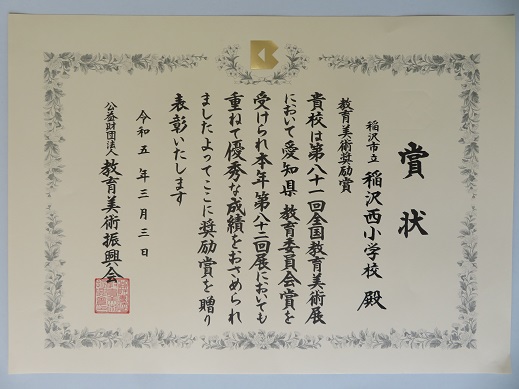 賞状
稲沢市立 稲沢西小学校 殿
教育美術奨励賞
貴校は第八十一回全国教育美術展
において愛知県教育委員会賞を
受けられ本年第八十二回展においても
重ねて優秀な成績をおさめられ
ましたよってここに奨励賞を贈り
表彰いたします
令和五年三月三日
公益財団法人 教育美術振興会